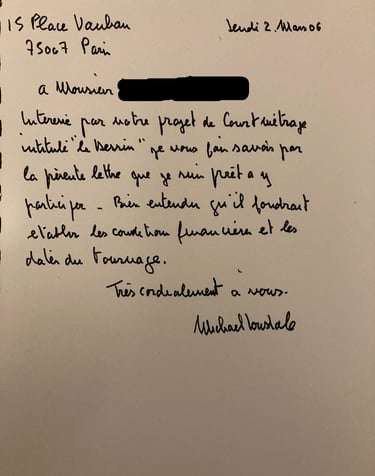 15 Place Vauban
75007 Paris
Jeudi 2. Mars 06
a Monsieur
Intéressé par votre projet de Court métrage
intitulé "le dessin" je vous fais savoir par
la présente lettre que je suis prêt a y
participer - Bien entendu qu'il faudrait
etablir les conditions financières et les
dates du tournage.
Très cordialement à vous.
Michael Lonsdale